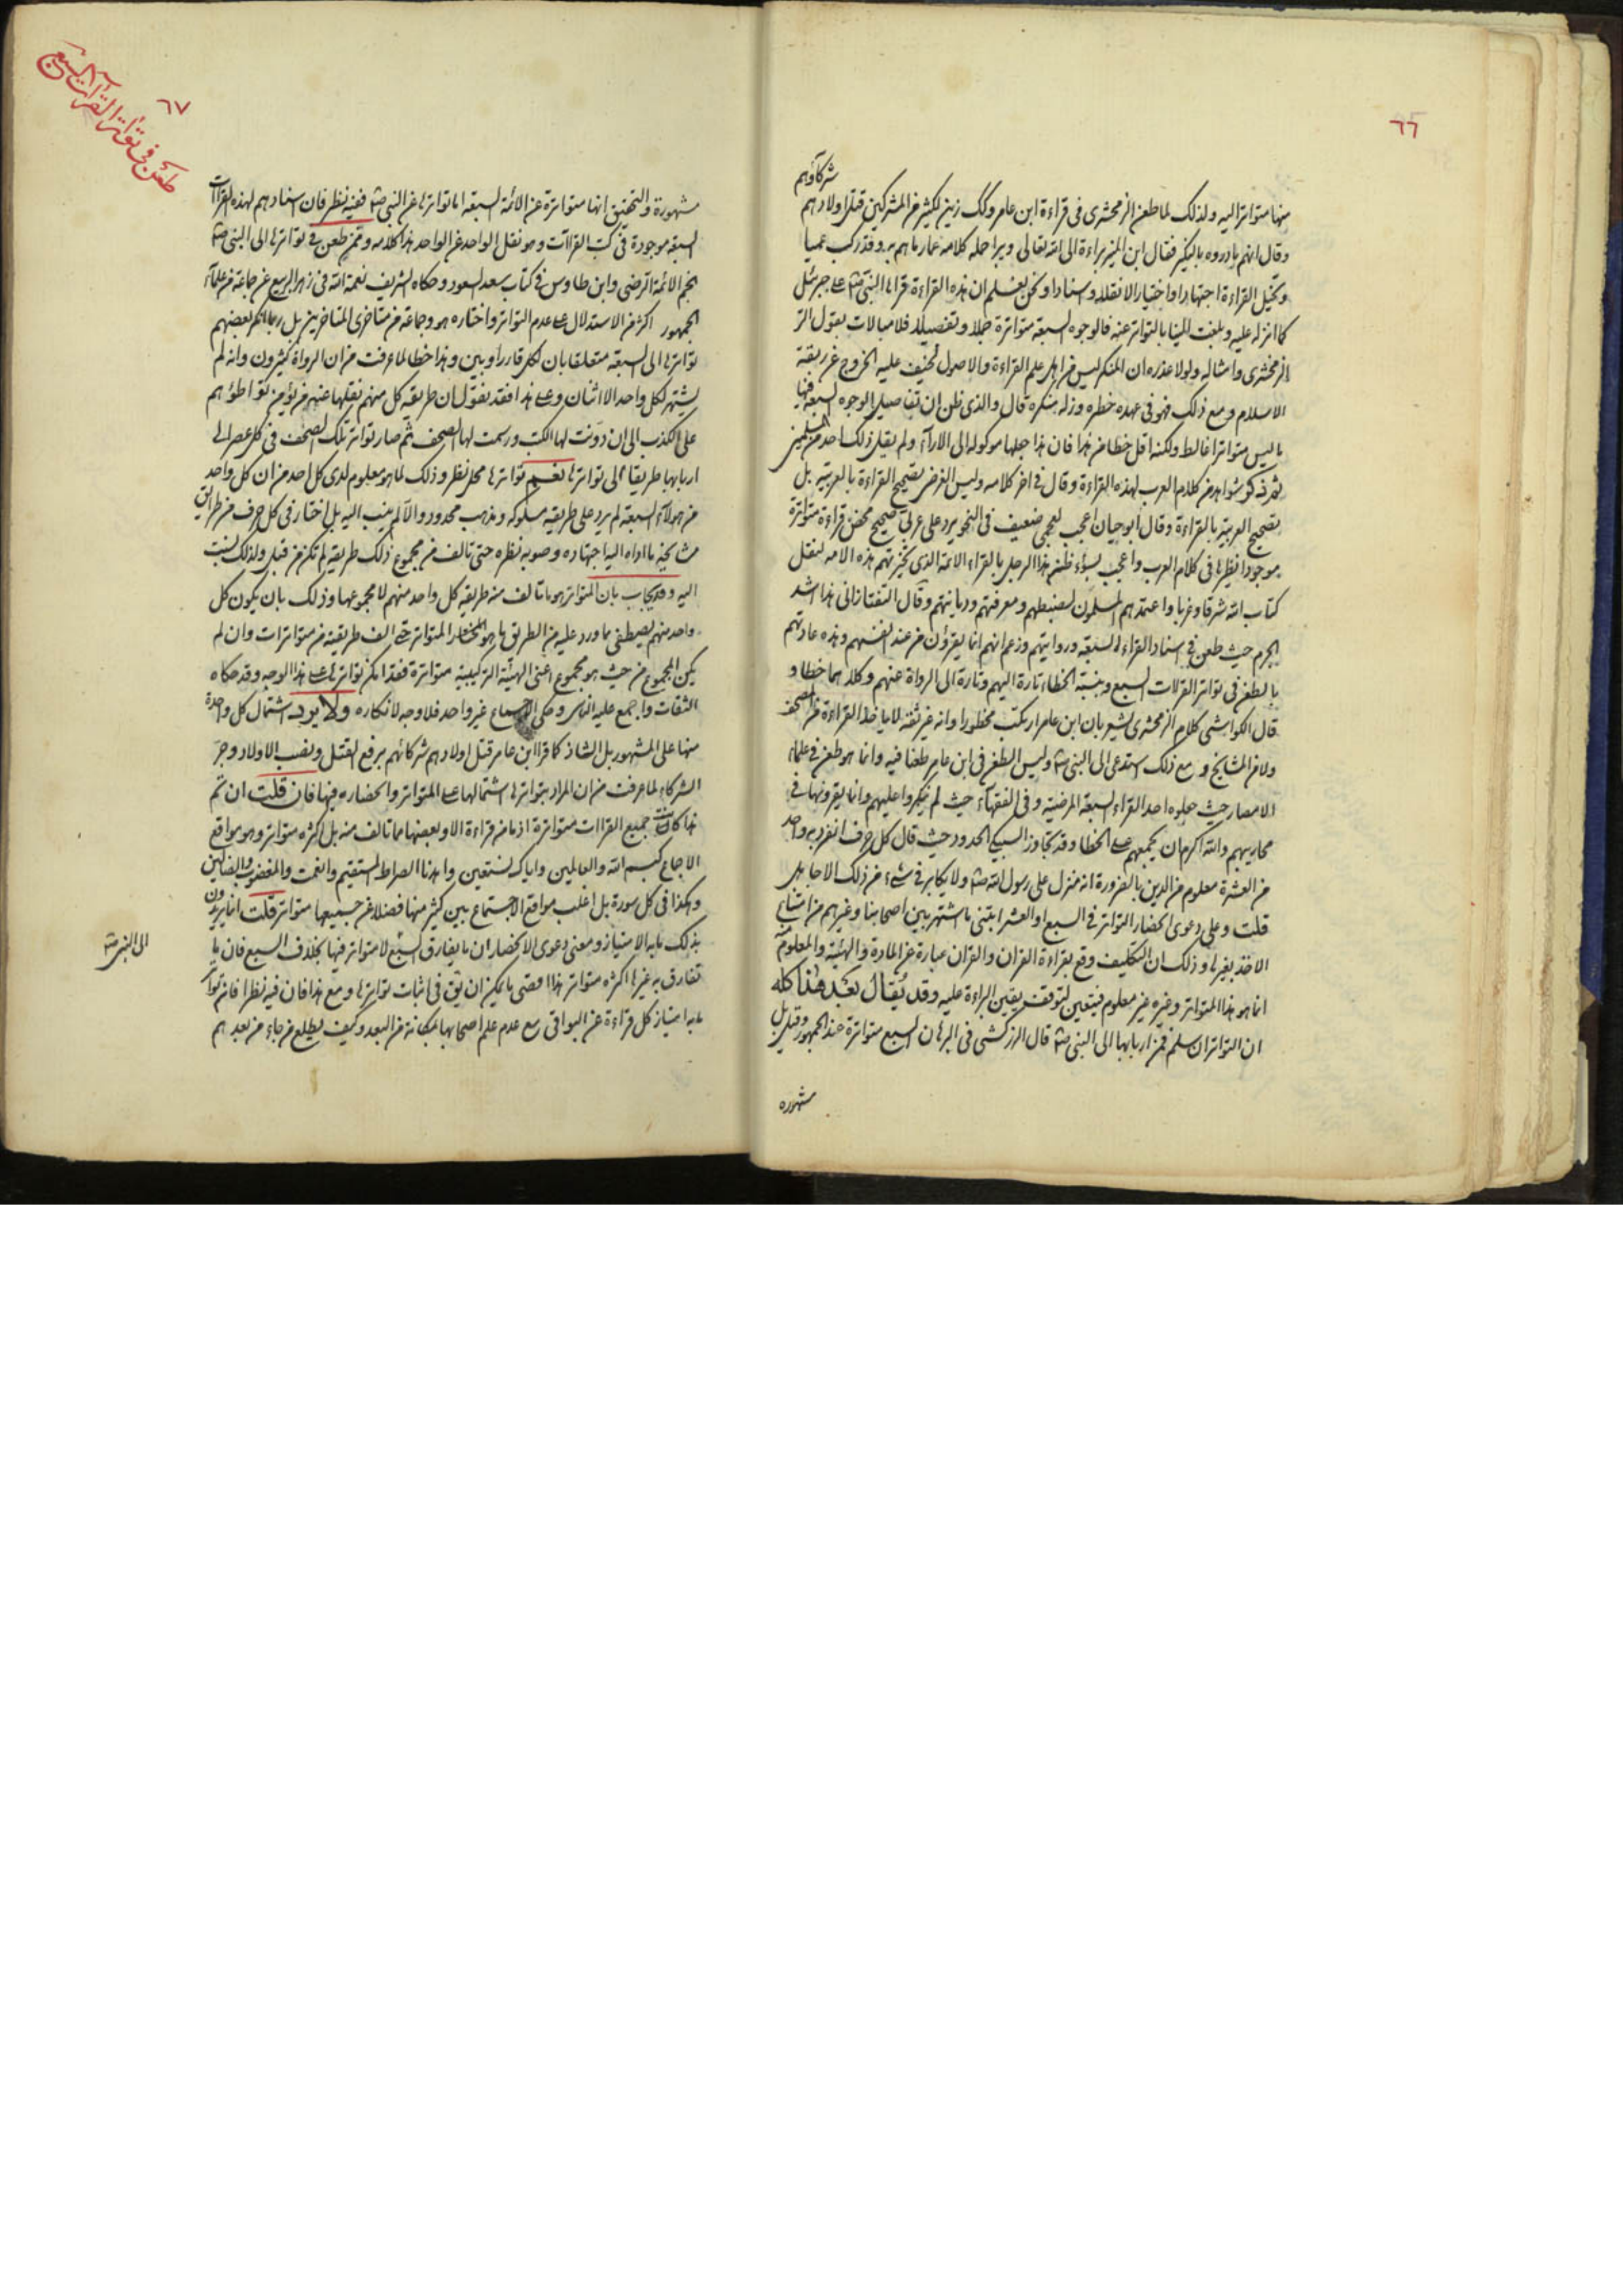 ٦٦
شركاؤهم
منها متواترا اليه ولذلك لما طعن الزمخشري في قراءة ابن عامر وكك زين لكثير من المشركين قتل اولادهم
وقال انهم بادروه بالنكير فقال ابن المنير براءة الى الله تعالى ويبرا حملة كلامه عما رماهم به وقد ركب عميا
وتخيل القراءة اجتهادا واختيارا لا نقلا واسنادا ونحن نعلم ان هذه القراءة قراها النبي ص على جبرئيل
كما انزله عليه وبلغت الينا بالتواتر عنه فالوجوه السبعة متواترة جملا وتفصيلا فلا مبالات بقول
الزمخشري وامثاله ولولا عذره ان المنكر ليس من اهل علم القراءة والاصول لخيف عليه الخروج عن ربقة
الاسلام ومع ذلك فهو في عهده خطره وزلة منكرة قال والذي ظن ان تفاصيل الوجوه السبعة فيها
ما ليس متواترا غالط ولكنه اقل خطا من هذا فان هذا جعلها موكولة الى الاراء ولم يقل ذلك احد من المسلمين
ثم ذكر شواهد من كلام العرب لهذه القراءة وقال في اخر كلامه وليس الغرض تصحيح القراءة بالعربية بل
تصحيح العربية بالقراءة وقال ابو حيان اعجب لعجمي ضعيف في النحو يرد على عربي صحيح محض قراءة متواترة
موجودا نظيرها في كلام العرب واعجب بسوء ظن هذا الرجل بالقراء الائمة الذي تخيرتهم هذه الامة لنقل
كتاب الله شرقا وغربا واعتمدهم المسلمون لضبطهم ومعرفتهم وديانتهم وقال التفتازاني هذا اشد
الجرم حيث طعن في اسناد القراء السبعة ورواياتهم وزعم انهم انما يقرؤن من عند انفسهم وهذه عادته
يطعن في تواتر القراات السبع وينسبة الخطاء تارة اليهم وتارة الى الرواة عنهم وكلاهما خطا و
قال الكواشي كلام الزمخشري يشعر بان ابن عامر ارتكب محظورا وانه غير ثقة لانه ياخذ القراءة من المصحف
ولا من المشايخ ومع ذلك استدعى الى النبي ص وليس الطعن في ابن عامر طعنا فيه وانما هو طعن في علماء
الامصار حيث جعلوه احد القراء السبعة المرضية وفي الفقهاء حيث لم ينكروا عليهم وانما يقرونها في
محاريبهم والله اكرم ان يجمعهم على الخطا وقد تجاوز السبكي الحدود حيث قال كل حرف انفرد به واحد
من العشرة معلوم من الدين بالضرورة انه منزل على رسول الله ص ولا يكابر في شيء من ذلك الا جاهل
قلت وعلى دعوى انحصار التواتر في السبع او العشر ابتني ما اشتهر بين اصحابنا وغيرهم من امتناع
الاخذ بغيرها وذلك ان التكليف وقع بقراءة القران والقران عبارة عن المادة والهيئة والمعلوم منه
انما هو هذا المتواتر وغيره غير معلوم فيتعين لتوقف يقين البراءة عليه وقد يقال بعد هذا كله
ان التواتر ان سلم فمن اربابها الى النبي ص قال الزركشي في البرهان السبع متواترة عند الجمهور وقيل بل
مشهورة
٦٧
طعن في تواتر القراآت السبع
مشهورة والتحقيق انها متواترة عن الائمة السبعة اما تواترها عن النبي ص ففيه نظر فان اسنادهم لهذه القراات
السبعة موجودة في كتب القراات وهو نقل الواحد عن الواحد هذا كلامه وممن طعن في تواترها الى النبي ص
نجم الائمة الرضي وابن طاوس في كتاب سعد السعود وحكاه الشريف نعمة الله في زهر الربيع عن جماعة من علماء
الجمهور اكثر من الاستدلال على عدم التواتر واختاره هو وجماعة من متاخري المتاخرين بل ربما انكر بعضهم
تواترها الى السبعة متعلقا بان لكل قار راويين وهذا خطا لما عرفت من ان الرواة كثيرون وانه لم
يشتهر لكل واحد الا اثنان وعلى هذا فقد نقول ان طريقة كل منهم نقلها عنه من يؤمن تواطؤهم
على الكذب الى ان دونت لها الكتب ورسمت لها الصحف ثم صار تواتر تلك الصحف في كل عصر الى
اربابها طريقا الى تواترها نعم تواترها محل نظر وذلك لما هو معلوم لدى كل احد من ان كل واحد
من هولاء السبعة لم يرد على طريقة مسلوكة ومذهب محدود والا لم ينسب اليه بل اختار في كل حرف من طرائق
مشايخه ما اداه اليه اجتهاده وصوبه نظره حتى تالف من مجموع ذلك طريقة لم تكن من قبل ولذلك نسبت
اليه وقد يجاب بان المتواتر هو ما تالف منه طريقة كل واحد منهم لا مجموعها وذلك بان يكون كل
واحد منهم يصطفي مما ورد عليه من الطرق ما هو المختار المتواتر حتى الف طريقته من متواترات وان لم
يكن المجموع من حيث هو مجموع اعني الهيئة التركيبية متواترة فقد امكن تواترها على هذا الوجه وقد حكاه
الثقات واجمع عليه الناس وحكى الاجماع غير واحد فلا وجه لانكاره ولا يرد اشتمال كل واحدة
منها على المشهور بل الشاذ كما قرا ابن عامر قتل اولادهم شركائهم برفع القتل ونصب الاولاد وجر
الشركاء لما عرفت من ان المراد بتواترها اشتمالها على المتواتر وانحصاره فيها فان قلت ان تم
هذا كانت جميع القراات متواترة اذ ما من قراءة الا وبعضها مما تالف منه بل اكثره متواتر وهو مواقع
الاجماع كبسم الله والعالمين واياك نستعين واهدنا الصراط المستقيم وانعمت والمغضوب والضالين
وهكذا في كل سورة بل اغلب مواقع الاجتماع بين كثير منها فضلا عن جميعها متواتر قلت انما يريدون
بذلك ما به الامتياز ومعنى دعوى الانحصار ان ما يفارق السبع لا متواتر فيها بخلاف السبع فان ما
تفارق به غيرها اكثره متواتر هذا اقصى ما يمكن ان يق في اثبات تواترها ومع هذا فان فيه نظرا فان تواتر
ما به امتياز كل قراءة عن البواقي مع عدم علم اصحابها بمكانة من البعد وكيف يطلع من جاء من بعدهم
الى النبي ص